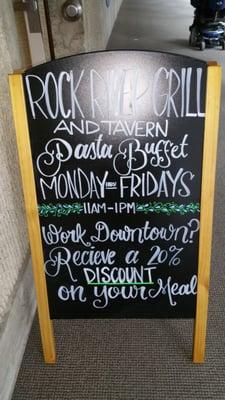 ROCK RIVER GRILL
AND TAVERN
Pasta Buffet
MONDAY thru FRIDAYS
11AM-1PM
Work Downtown?
Recieve a 20%
DISCOUNT
on your Meal